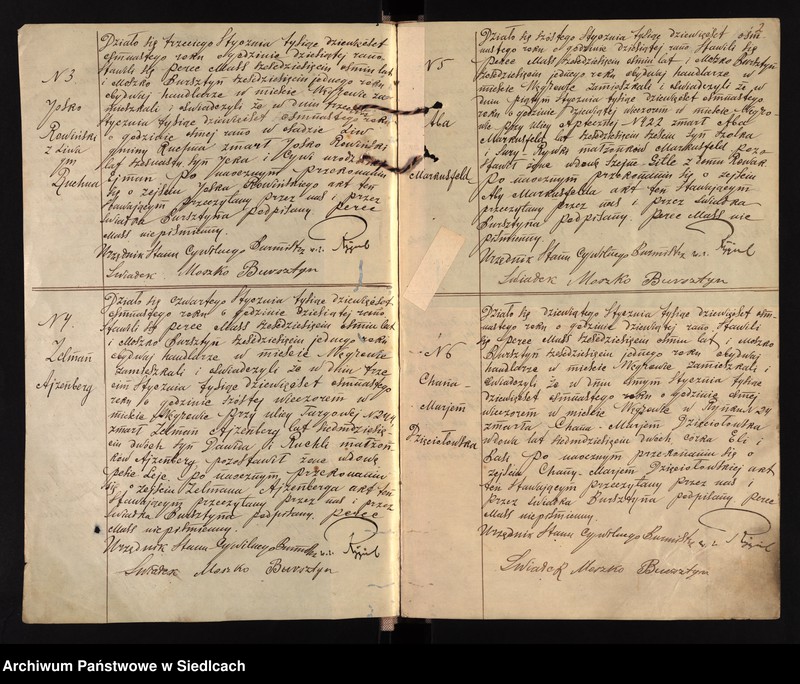 N 3
Josko
Rowiński
z Liwa
gm
Ruchna
Działo się trzeciego Stycznia tysiąc dziewięćset
osmnastego roku o godzinie dziesiątej rano.
Stawili się Perec Mass sześdziesięciu ośmiu lat
i Moszko Bursztyn sześdziesięciu jednego roku
obydwaj handlarze w mieście Węgrowie za
mieszkali i świadczyli że w dniu trzecim
Stycznia tysiąc dziewięćset osmnastego roku
o godzinie ósmej rano w osadzie Liw
gminy Ruchna zmarł Josko Rowiński
lat syn Jcka i Cywi
Ejman Po naocznym przekonaniu
się o zejściu Joska Rowińskiego akt ten
stawającym przeczytany przez nas i przez
świadka Bursztyna podpisany. Perec
Mass niepiśmienny.
Urzędnik Stanu Cywilnego Burmistrz
Świadek Moszko Bursztyn
N 4.
Zelman
Ajzenberg
Działo się czwartego Stycznia tysiąc dziewięćset
osmnastego roku o godzinie dziesiątej rano
stawili się Perec Mass sześdziesięciu ośmiu lat
i Moszko Bursztyn sześdziesięciu jednego roku
obydwaj handlarze w mieście Węgrowie
zamieszkali i świadczyli że w dniu trze
cim Stycznia tysiąc dziewięćset osmnastego
roku o godzinie szóstej wieczorem w
mieście Węgrowie przy ulicy N 244
zmarł Zelman Ajzenberg lat siedmdziesię
ciu dwóch syn Dawida i Ruchli małżon
ków Ajzenberg pozostawił żonę wdowę
Leję. Po naocznym przekonaniu
się o zejściu Zelmana Ajzenberga akt ten
stawającym przeczytany przez nas i przez
świadka Bursztyna podpisany. Perec
Mass niepiśmienny.
Urzędnik Stanu Cywilnego Burmistrz
Świadek Moszko Bursztyn
2
N 5
Aba
Markusfeld
Działo się szóstego Stycznia tysiąc dziewięćset ośm
nastego roku o godzinie dziesiątej rano Stawili się
Perec Mass sześdziesięciu ośmiu lat i Moszko Bursztyn
sześdziesięciu jednego roku obydwaj handlarze w
mieście Węgrowie zamieszkali i świadczyli że w
dniu piątym Stycznia tysiąc dziewięćset osmnastego
roku o godzinie dziewiątej wieczorem w mieście Węgro-
wie przy ulicy Aptecznej N 122 zmarł Aba
Markusfeld lat sześdziesięciu syn
i Sury-Rywki małżonków Markusfeld pozo
stawił żonę wdowę Szejne Gitle z domu Nowak
Po naocznym przekonaniu się o zejściu
Aby Markusfelda akt ten stawającym
przeczytany przez nas i przez świadka
Bursztyna podpisany. Perec Mass nie
piśmienny.
Urzędnik Stanu Cywilnego Burmistrz
Świadek Moszko Bursztyn
N 6
Chana-
Marjem
Dzięciołowska
Działo się dziewiątego Stycznia tysiąc dziewięćset ośm-
nastego roku o godzinie dziewiątej rano. Stawili
się Perec Mass sześdziesięciu ośmiu lat i Moszko
Bursztyn sześdziesięciu jednego roku obydwaj
handlarze w mieście Węgrowie zamieszkali i
świadczyli że w dniu ósmym Stycznia tysiąc
dziewięćset osmnastego roku o godzinie ósmej
wieczorem w mieście Węgrowie w Rynku N 24
zmarła Chana-Marjem Dzięciołowska
wdowa lat siedmdziesięciu dwóch, córka Eli i
Basi. Po naocznym przekonaniu się o
zejściu Chany-Marjem Dzięciołowskiej akt
ten stawającym przeczytany przez nas i
przez świadka Bursztyna podpisany Perec
Mass niepiśmienny.
Urzędnik Stanu Cywilnego Burmistrz
Świadek Moszko Bursztyn
Archiwum Państwowe w Siedlcach